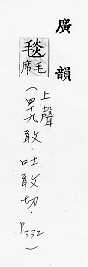 廣韻
毯
毛席
(上聲
四十九敢.吐敢切.P.332)